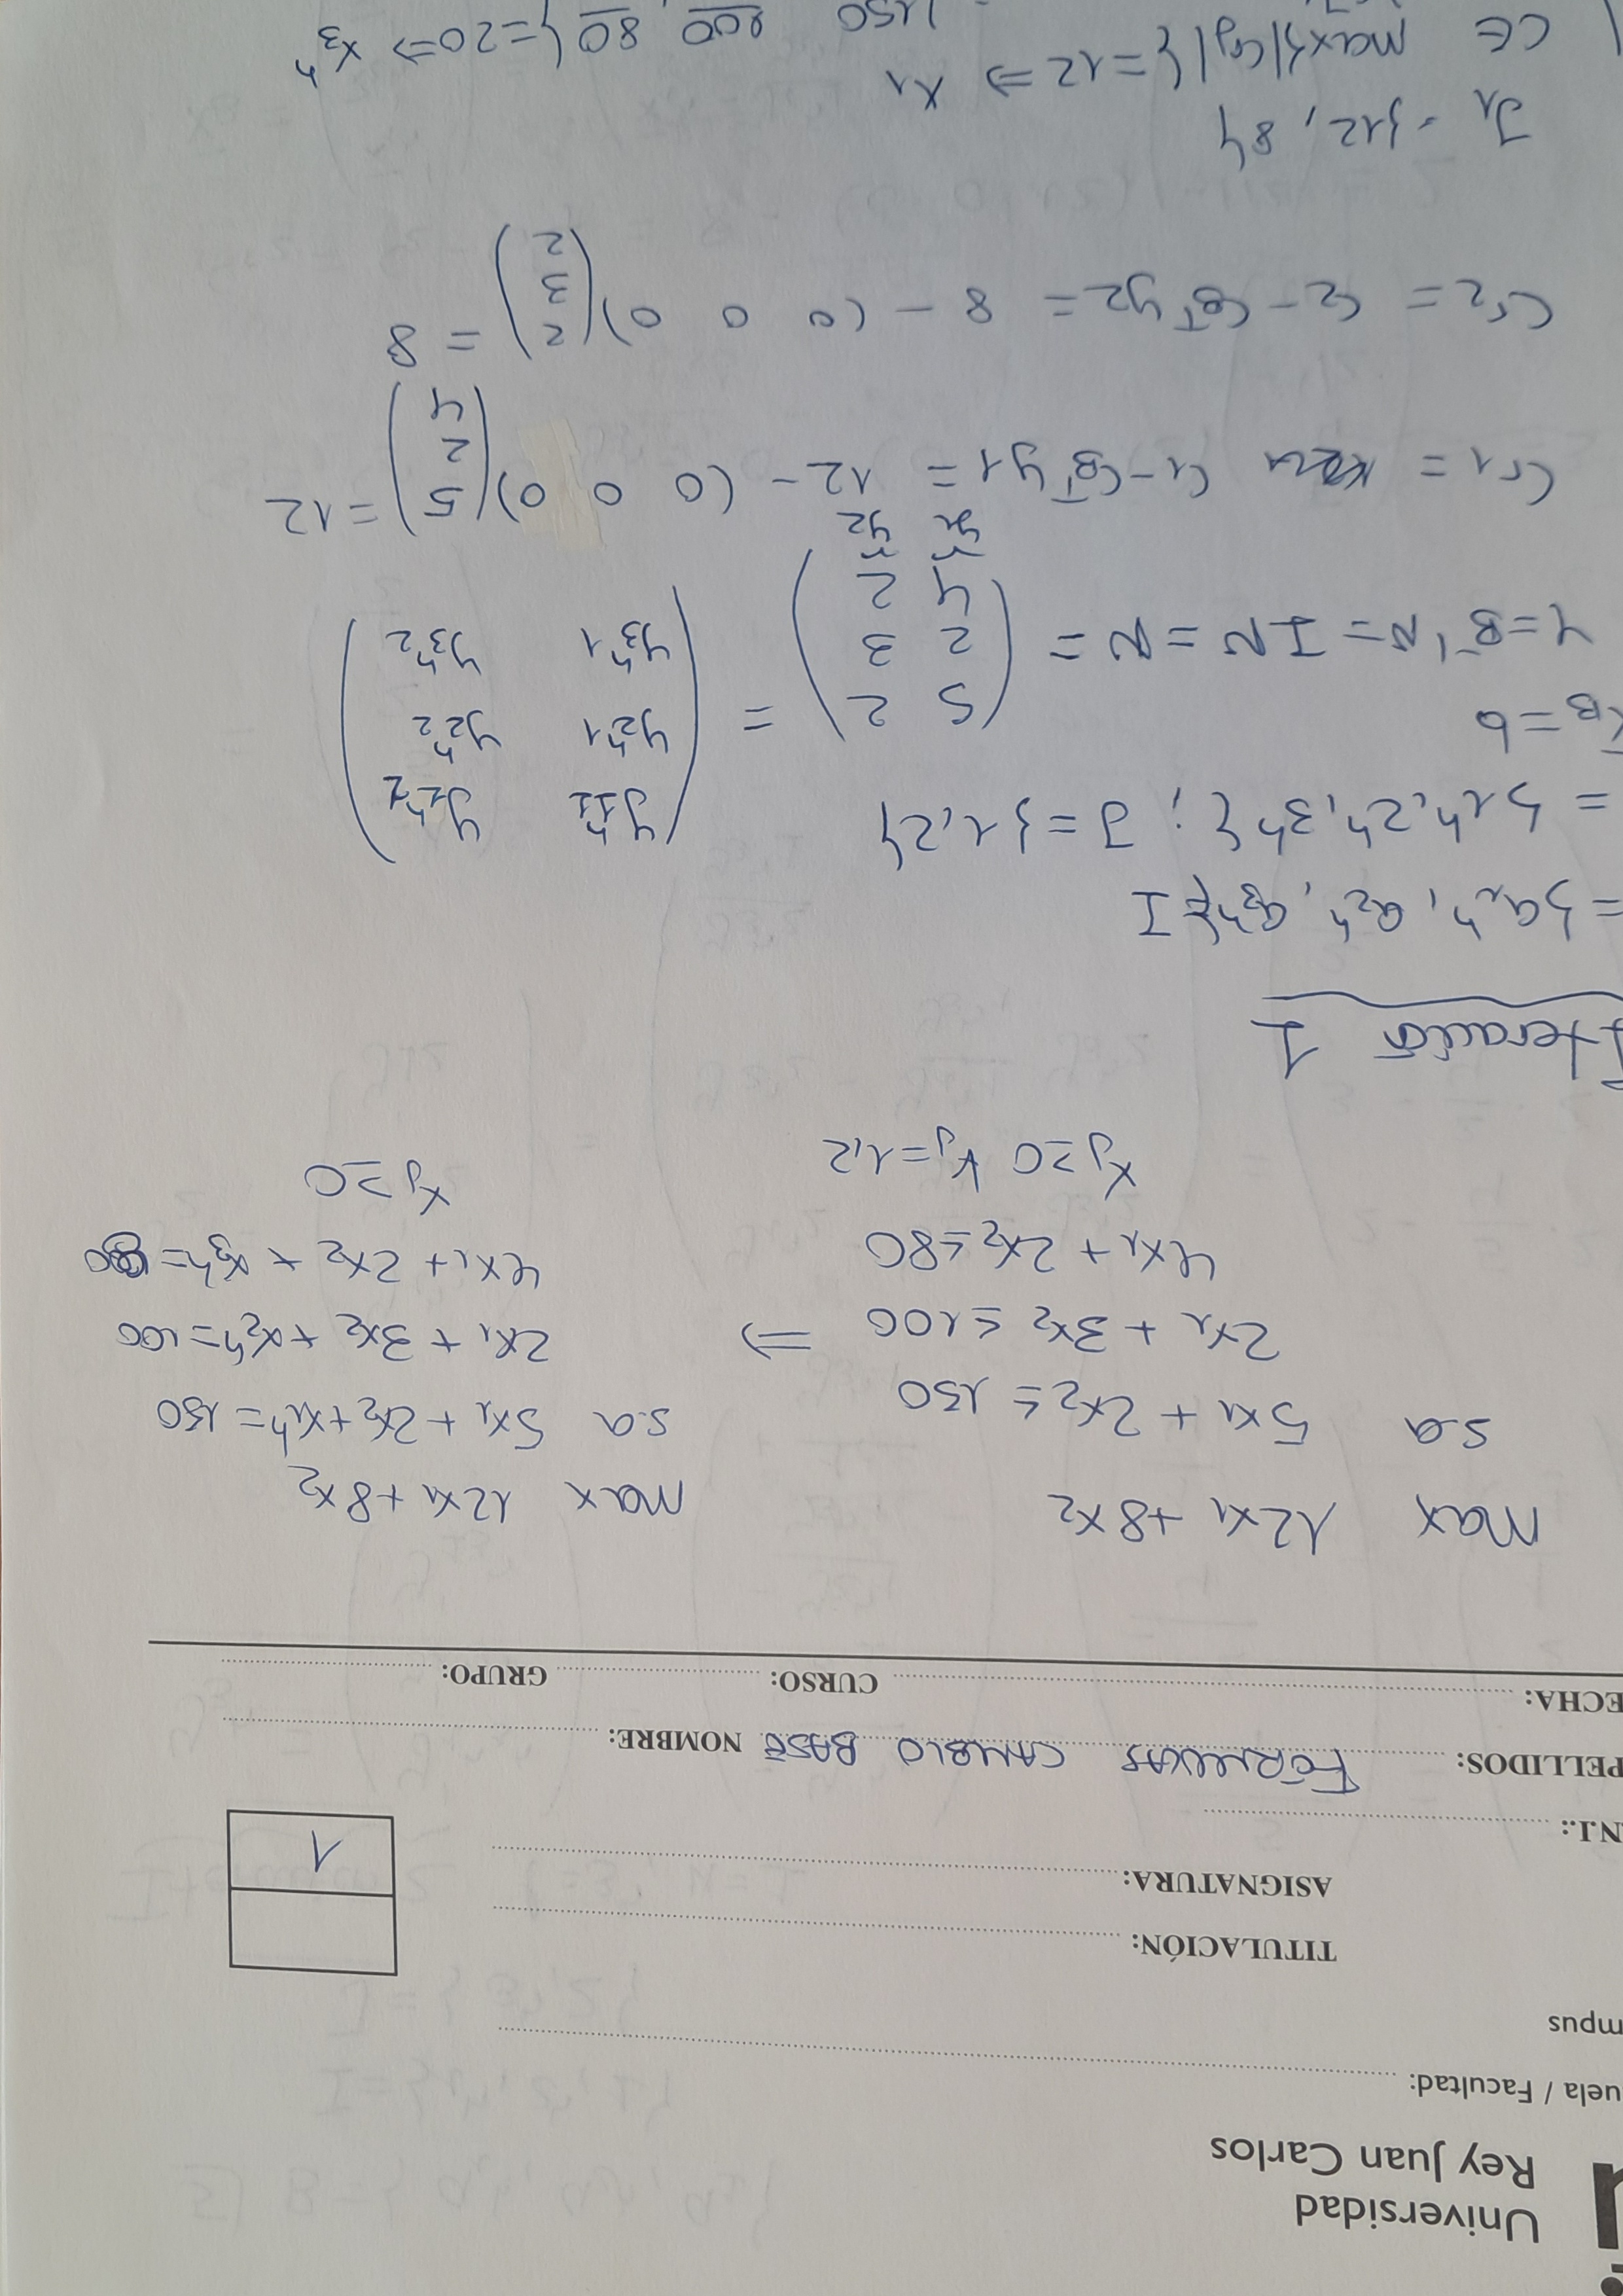 Universidad
Rey Juan Carlos
uela / Facultad:
mpus
TITULACIÓN:
ASIGNATURA:
1
N.I.:
PELLIDOS: FÓRMULAS CAMBIO BASE NOMBRE:
ECHA: CURSO: GRUPO:
Max 12x1 + 8x2 Max 12x1 + 8x2
s.a 5x1 + 2x2 ≤ 150 s.a 5x1 + 2x2 + x1h = 150
2x1 + 3x2 ≤ 100 ⇒ 2x1 + 3x2 + x2h = 100
4x1 + 2x2 ≤ 80 4x1 + 2x2 + x3h = 80
xj ≥ 0 ∀j = 1,2 xj ≥ 0
Iteración 1
= {a1h, a2h, a3h} = I
= {1h, 2h, 3h}; J = {1,2}
XB = b
Y = B⁻¹N = IN = N = (5 2 / 2 3 / 4 2) = (y1h1 y1h2 / y2h1 y2h2 / y3h1 y3h2)
y1 y2
cr1 = c1 - cBT y1 = 12 - (0 0 0) (5 / 2 / 4) = 12
cr2 = c2 - cBT y2 = 8 - (0 0 0) (2 / 3 / 2) = 8
J1 = {12, 8}
CE max{|crj|} = 12 ⇒ x1
150 100 80 } = 20 ⇒ x3h